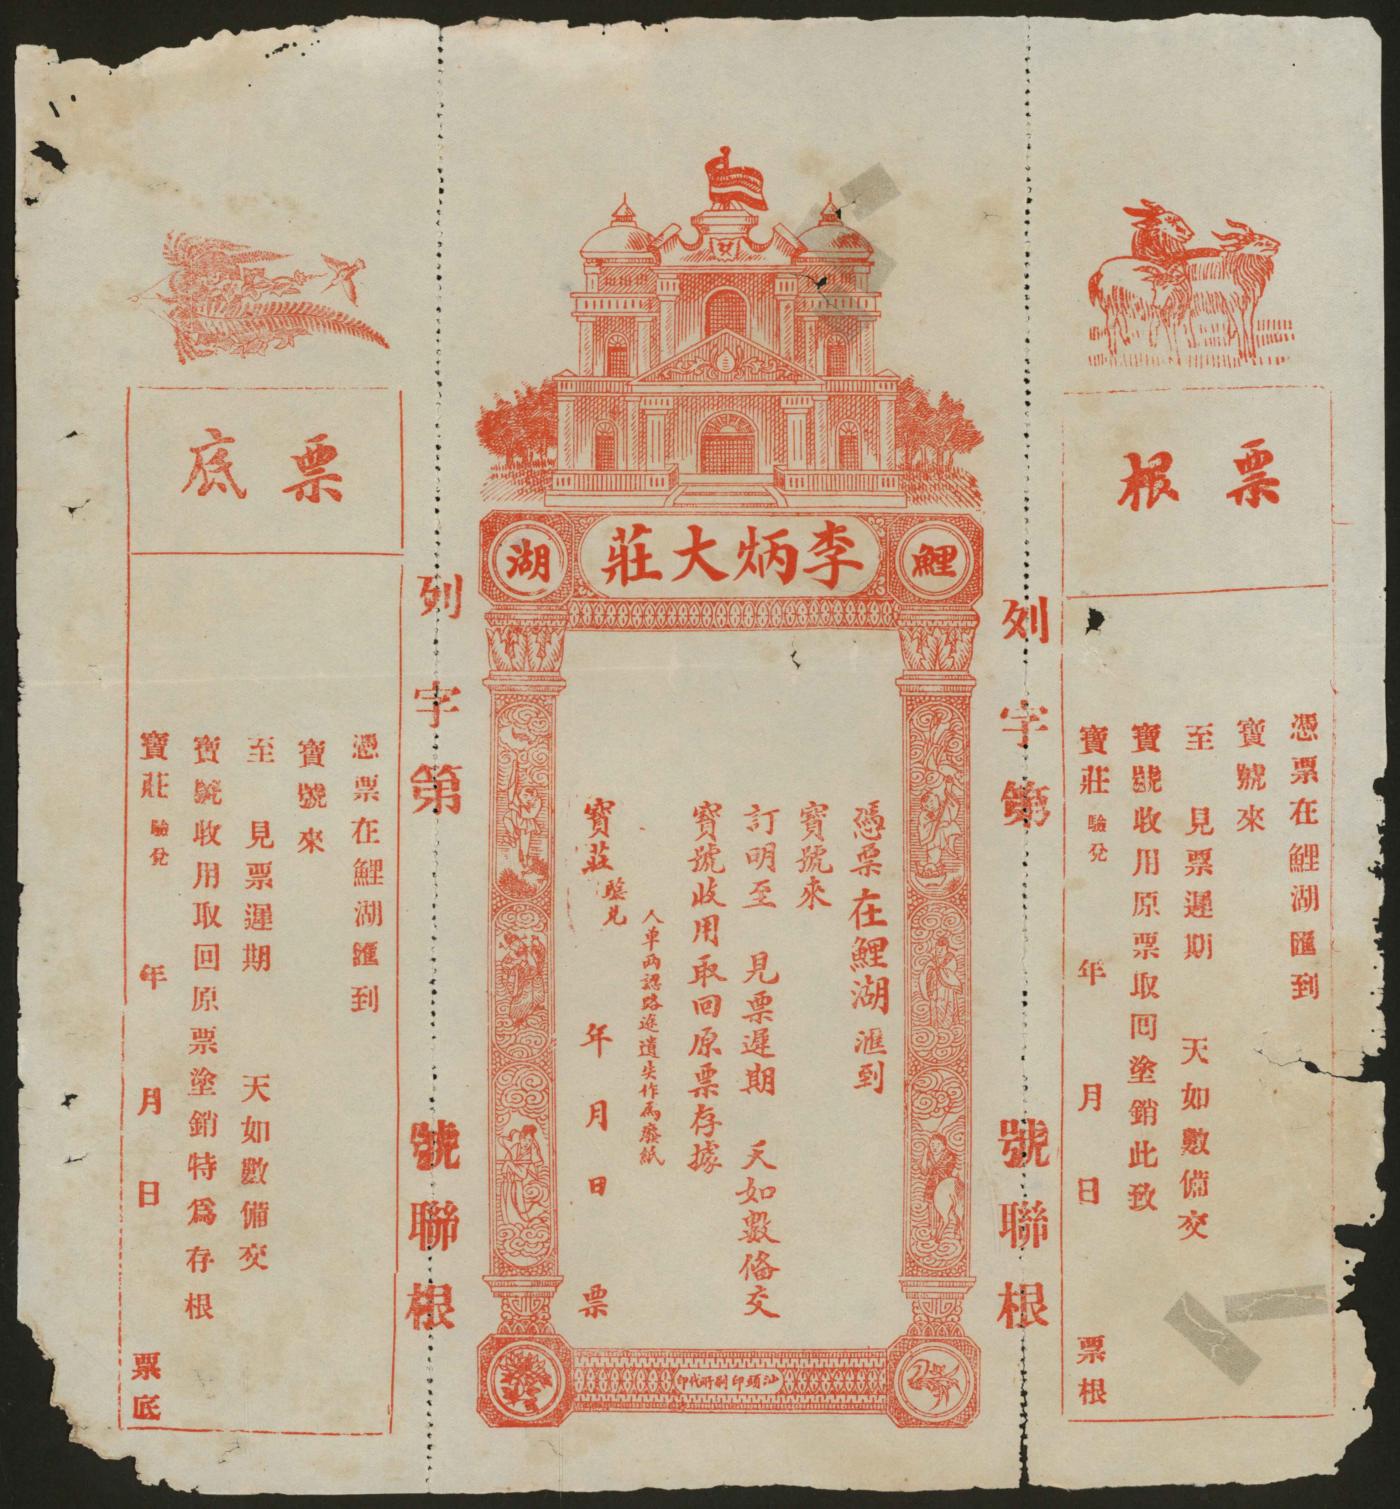 票根
憑票在鯉湖匯到
寶號來
至　見票遲期　天如數備交
寶號收用原票取回塗銷此致
寶莊驗兌　年　月　日　票根
列字第　號聯根
鯉湖
李炳大莊
憑票在鯉湖滙到
寶號來
訂明至　見票遲期　天如數俻交
寶號收用取回原票存據
人車両認路途遺失作為廢紙
寶莊鑒兌　年　月　日　票
汕頭印刷所代印
列字第　號聯根
票底
憑票在鯉湖匯到
寶號來
至　見票遲期　天如數備交
寶號收用取回原票塗銷特為存根
寶莊驗兌　年　月　日　票底